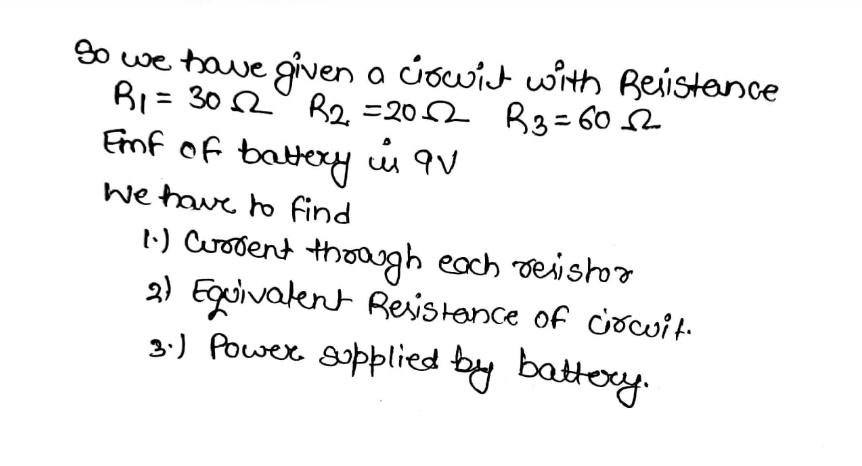 So we have given a circuit with Resistance
R1 = 30 Ω R2 = 20 Ω R3 = 60 Ω
Emf of battery is 9V
We have to find
1.) Current through each resistor
2) Equivalent Resistance of circuit.
3.) Power supplied by battery.